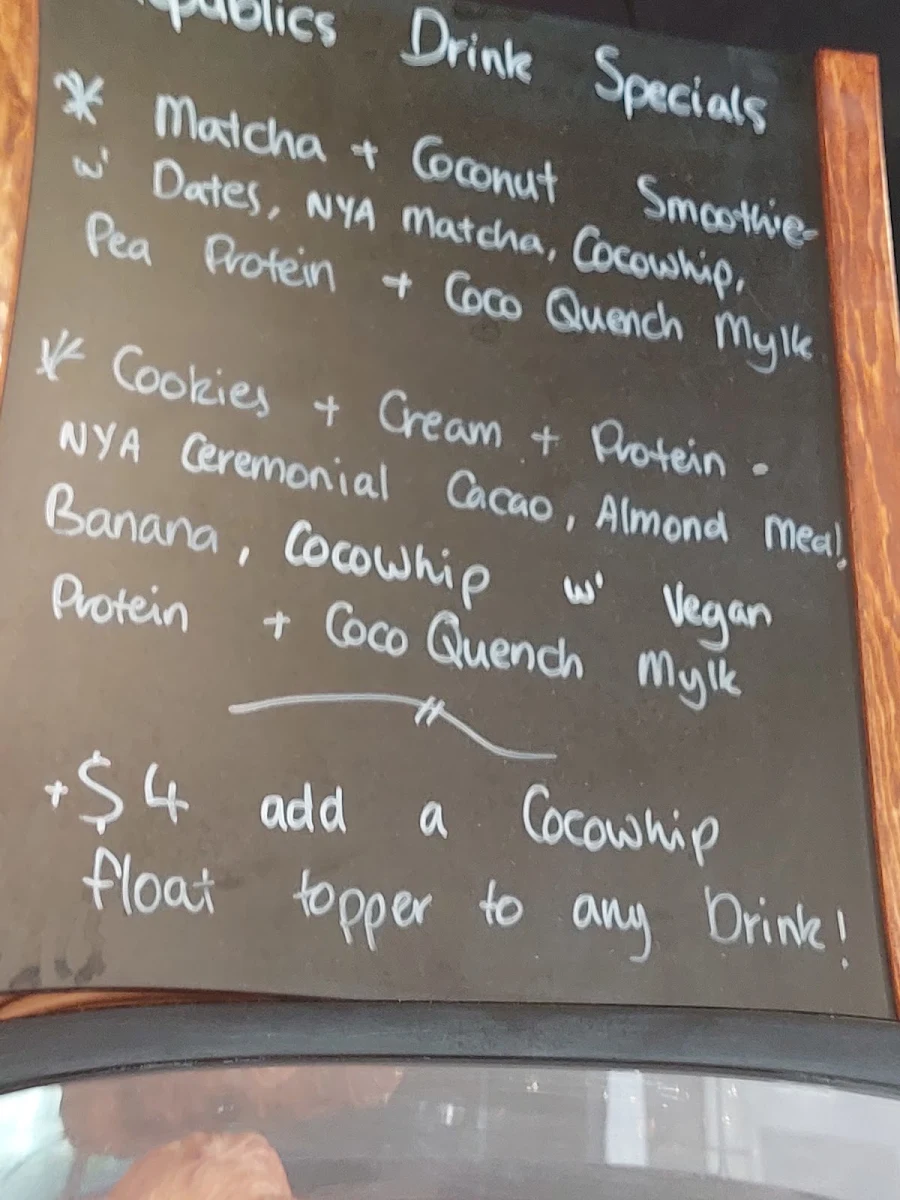 Drink Specials
* Matcha + Coconut Smoothie-
w' Dates, NYA Matcha, Cocowhip,
Pea Protein + Coco Quench Mylk
* Cookies + Cream + Protein -
NYA Ceremonial Cacao, Almond meal,
Banana, CocoWhip w' Vegan
Protein + Coco Quench Mylk
+$4 add a Cocowhip
float topper to any Drink!